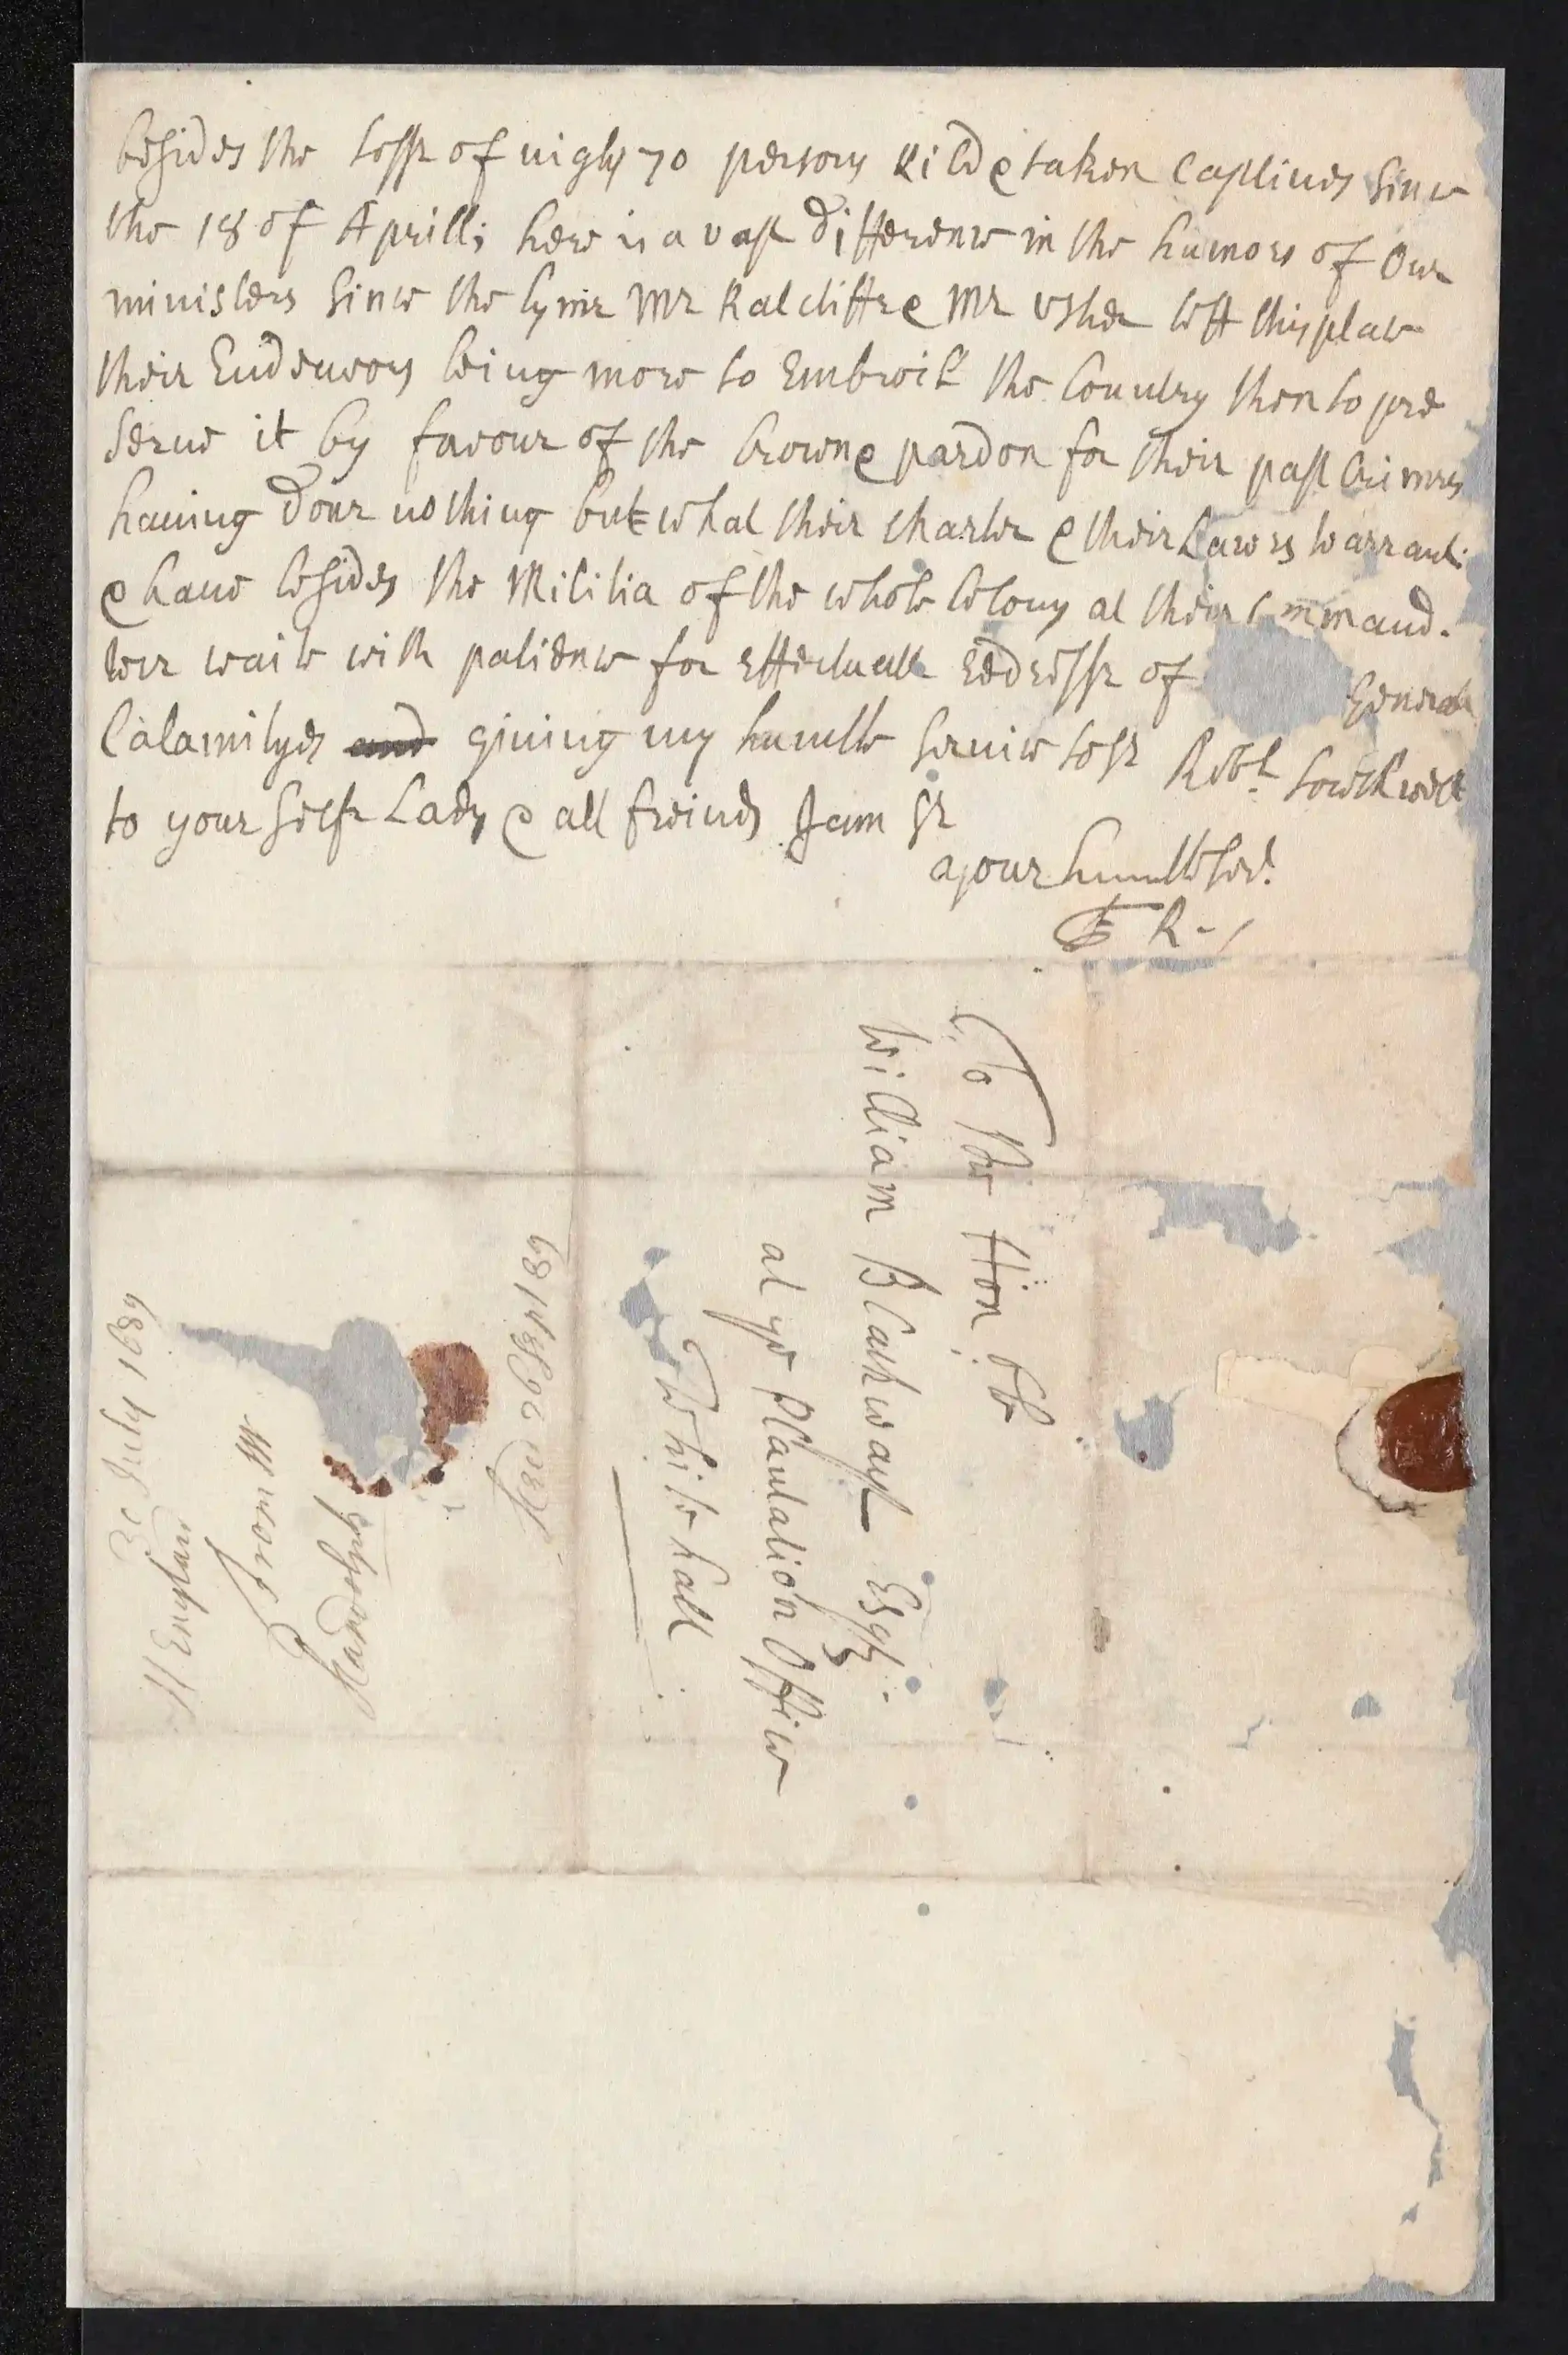 besides the losse of nigh 70 persons kild & taken Captives Since
the 18 of Aprill; here is a vast difference in the humors of Our
ministers Since the tyme Mr Ratcliffe & Mr Usher left this place
their Endeuors being more to Embroile the Country then to pre
serue it by favour of the Crown & pardon for their past Crimes
hauing done nothing but what their Charter & their Lawes warrant:
& haue besides the Militia of the whole Colony at their Command.
wee waite with patience for effectuall redresse of Generall
Calamityes and giuing my humble seruice to Sr Robt. Southwell
to your Selfe Lady & all freinds I am Sr
your humble servt.
E R-
To the Honoble
William Blathwayt Esqr.
at ye Plantation Office
Whitehall
Rec 26 Sept 89
30 July 1689
N England
From Mr
Randolph